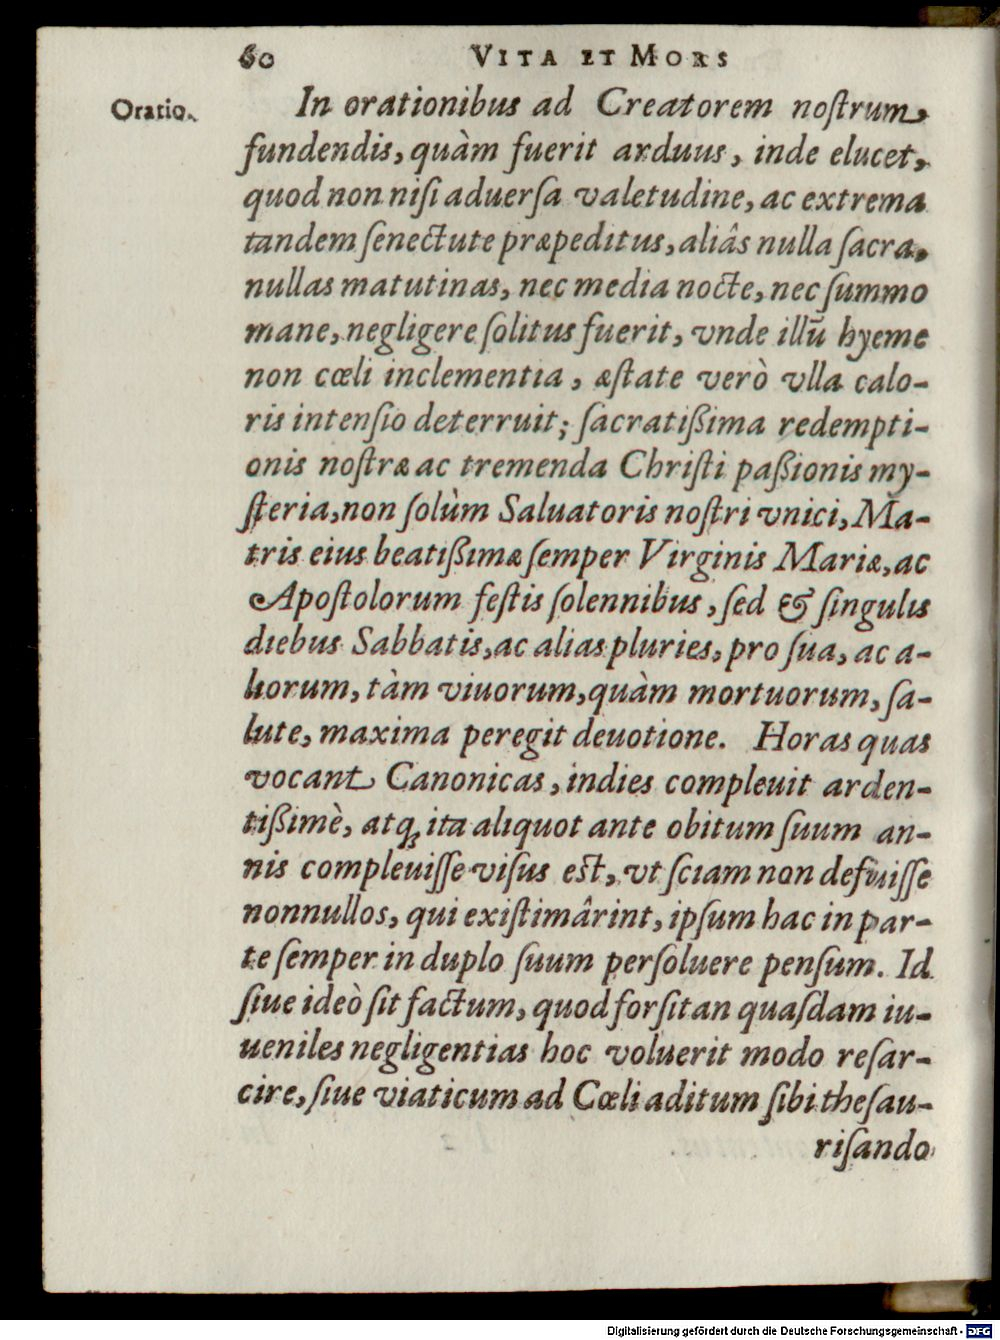 60 VITA ET MORS
Oratio.
In orationibus ad Creatorem noſtrum,
fundendis, quàm fuerit arduus, inde elucet,
quod non niſi aduerſa valetudine, ac extrema
tandem ſenectute præpeditus, aliâs nulla ſacra,
nullas matutinas, nec media nocte, nec ſummo
mane, negligere ſolitus fuerit, vnde illũ hyeme
non cœli inclementia, æſtate verò vlla calo-
ris intenſio deterruit; ſacratißima redempti-
onis noſtræ ac tremenda Chriſti paßionis my-
ſteria, non ſolùm Saluatoris noſtri vnici, Ma-
tris eius beatißimæ ſemper Virginis Mariæ, ac
Apoſtolorum feſtis ſolennibus, ſed & ſingulis
diebus Sabbatis, ac alias pluries, pro ſua, ac a-
liorum, tàm viuorum, quàm mortuorum, ſa-
lute, maxima peregit deuotione. Horas quas
vocant Canonicas, indies compleuit arden-
tißimè, atq; ita aliquot ante obitum ſuum an-
nis compleuiſſe viſus eſt, vt ſciam non defuiſſe
nonnullos, qui exiſtimârint, ipſum hac in par-
te ſemper in duplo ſuum perſoluere penſum. Id
ſiue ideò ſit factum, quod forſitan quaſdam iu-
ueniles negligentias hoc voluerit modo reſar-
cire, ſiue viaticum ad Cœli aditum ſibi theſau-
riſando
Digitalisierung gefördert durch die Deutsche Forschungsgemeinschaft - DFG